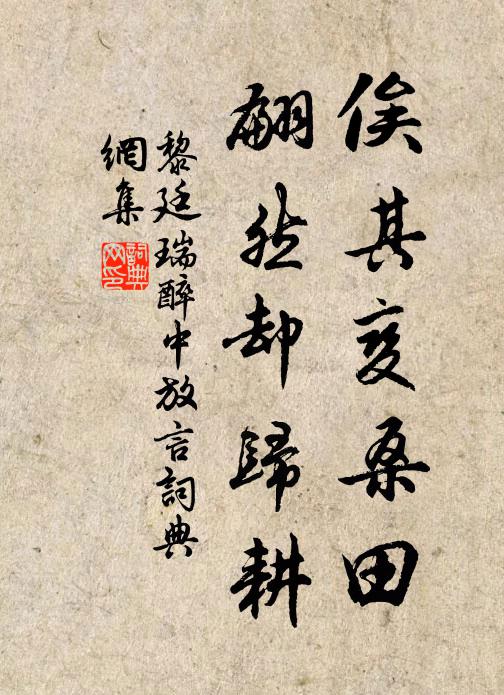 俟其变桑田
翩然却歸耕
黎廷瑞醉中放言詞典
網集
詞典
网印